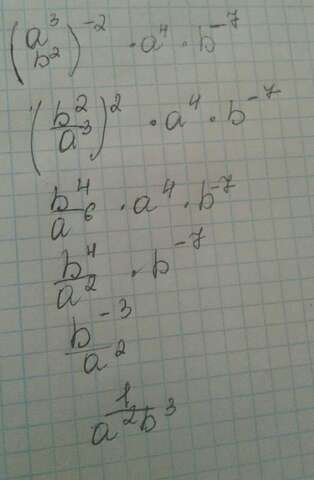 (a³/b²)⁻² · a⁴ · b⁻⁷
(b²/a³)² · a⁴ · b⁻⁷
b⁴/a⁶ · a⁴ · b⁻⁷
b⁴/a² · b⁻⁷
b⁻³/a²
1/a²b³